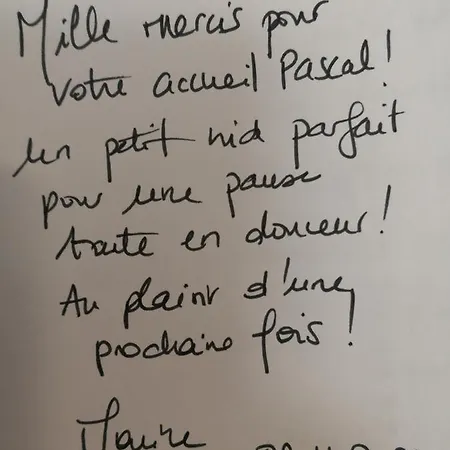 Mille mercis pour
votre accueil Pascal !
un petit nid parfait
pour une pause
toute en douceur !
Au plaisir d'une
prochaine fois !